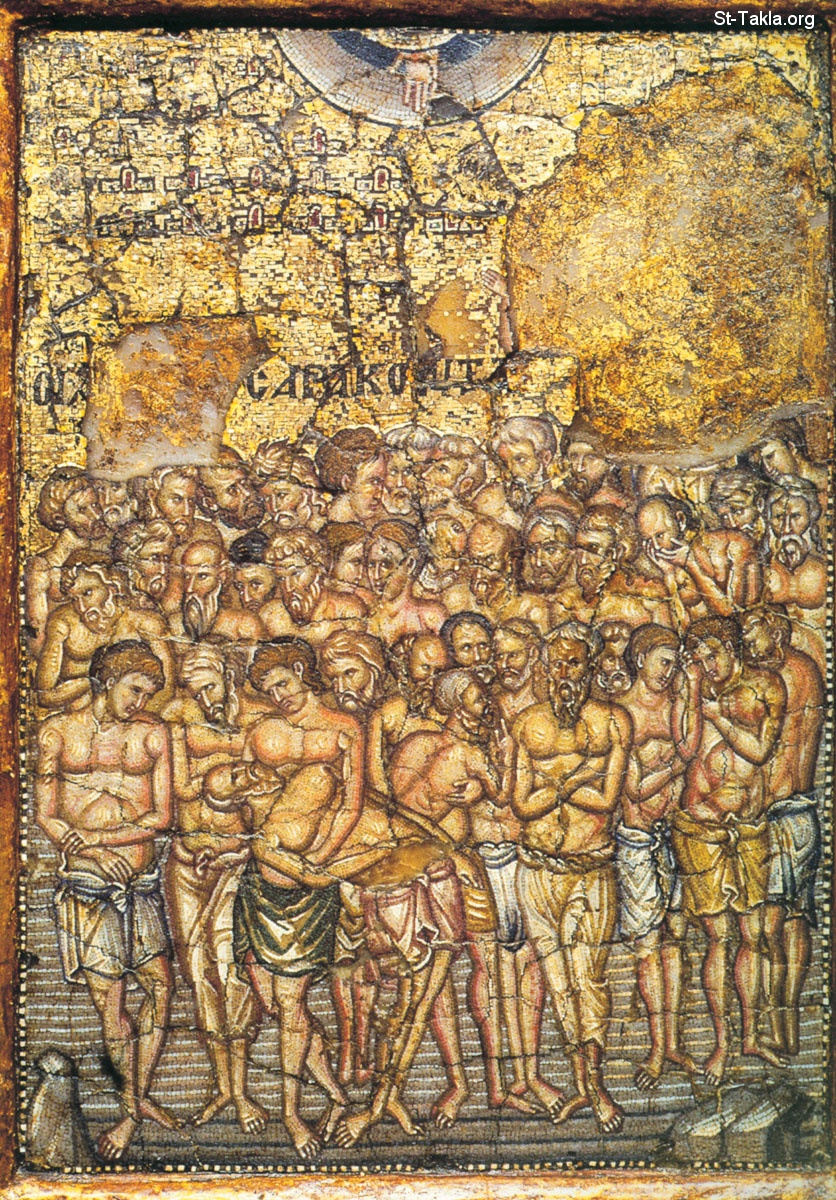 St-Takla.org
ΟΙ Α ΣΑΡΑΚΟΝΤΑ